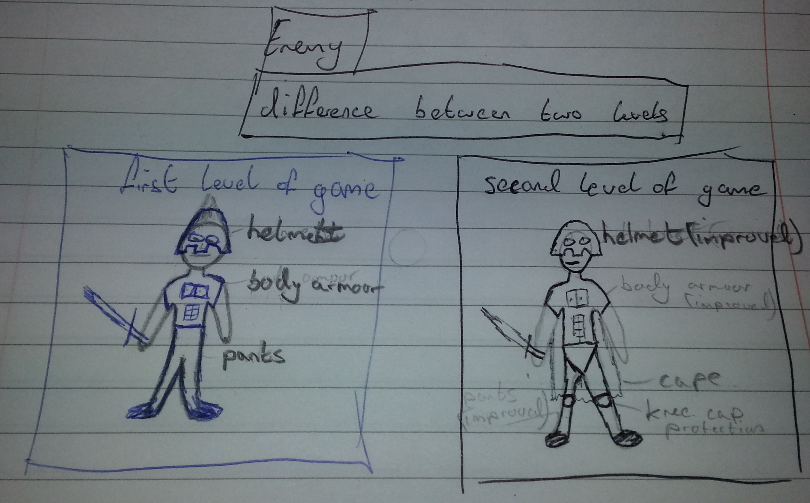 Enemy
difference between two levels
first level of game
helmet
body armour
pants
second level of game
helmet (improved)
body armour
(improved)
cape
pants
(improved)
knee cap
protection